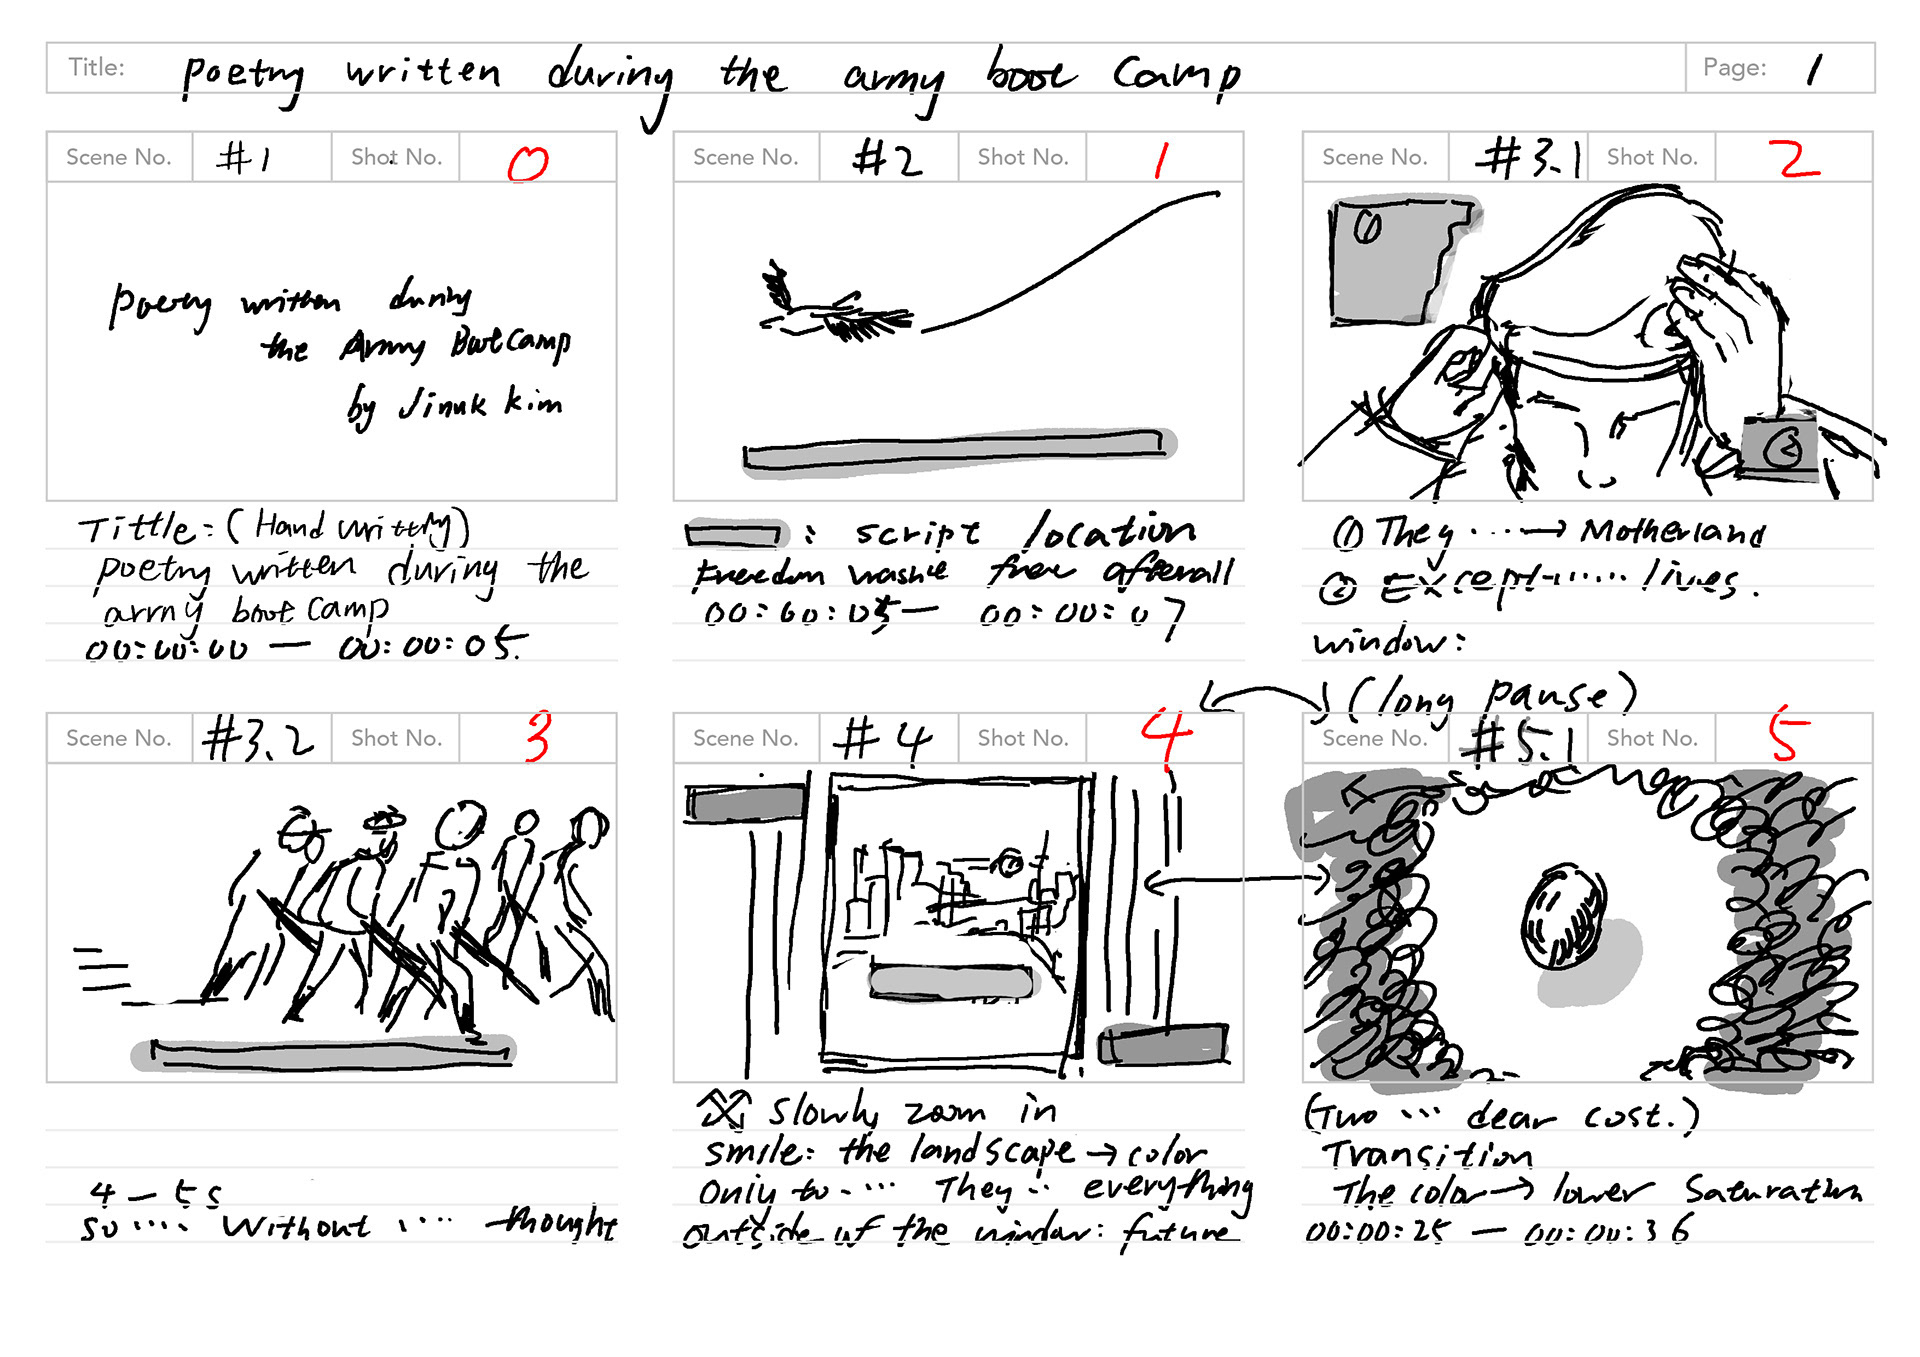 Title: poetry written during the army boot camp
Page: 1
Scene No. #1 Shot No. 0
poetry written during
the Army Boot Camp
by Jinuk kim
Tittle: (Hand writtng)
poetry written during the
army boot camp
00:00:00 — 00:00:05
Scene No. #2 Shot No. 1
: script location
Freedom free afterall
00:00:05 — 00:00:07
Scene No. #3.1 Shot No. 2
①
②
① They ····→ Motherland
② Except ······ lives.
window:
(long pause)
Scene No. #3.2 Shot No. 3
4 — 5s
so ···· without ···· thought
Scene No. #4 Shot No. 4
slowly zoom in
smile: the landscape → color
Only to ···· They ·· everything
outside of the window: future
Scene No. #5.1 Shot No. 5
(Two ··· dear cost.)
Transition
The color → lower saturation
00:00:25 — 00:00:36